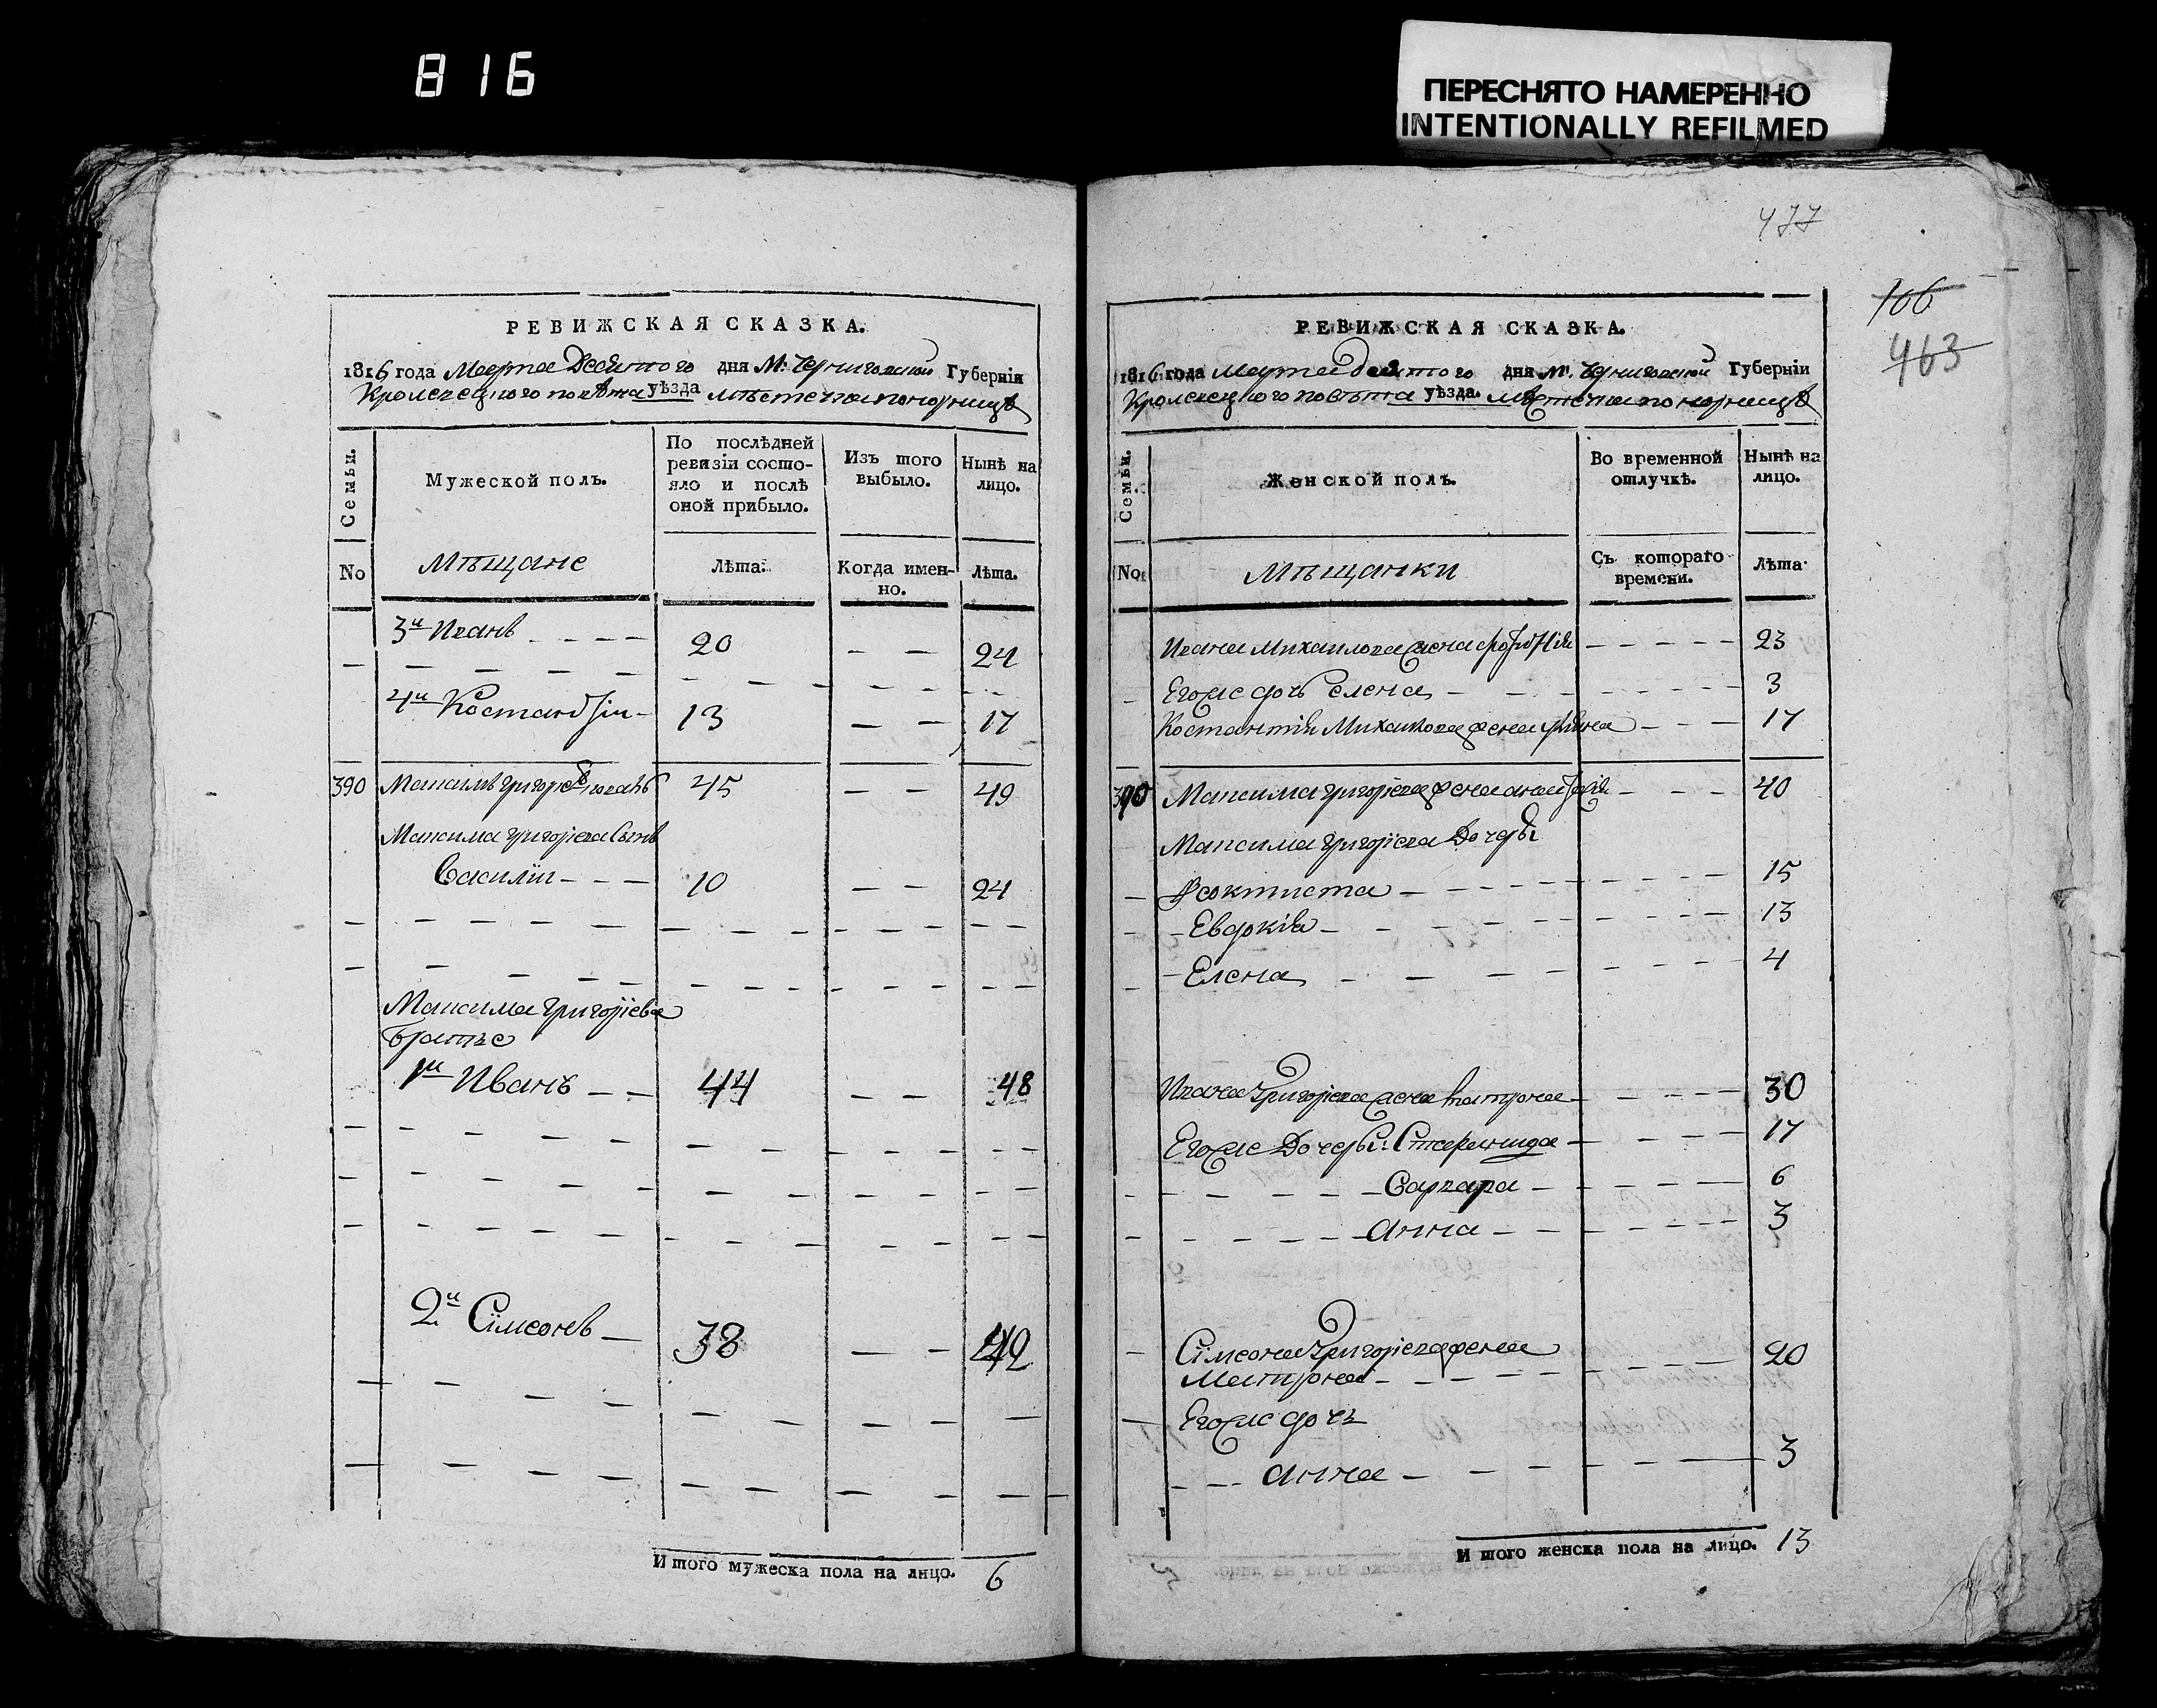 816
ПЕРЕСНЯТО НАМЕРЕННО
INTENTIONALLY REFILMED
РЕВИЖСКАЯ СКАЗКА.
1816 года Марта Десятого дня М. Черниговской Губернїи
Кролевецкого повѣта уѣзда мѣстечка понорницѣ
Семьи.
Мужеской полъ.
По послѣдней ревизїи состояло и послѣ оной прибыло.
Изъ того выбыло.
Нынѣ на лицо.
No
Мѣщане
Лѣта.
Когда именно.
Лѣта.
3й Иванъ 20 24
4й Костантїи 13 17
390 Максимъ григорїевъ 45 49
Максима григорїева Сынъ
Василїи 10 24
Максима григорїева
Братье
1й Иванъ 44 48
2й Сїмеонъ 38 42
И того мужеска пола на лицо. 6
477
106
463
РЕВИЖСКАЯ СКАЗКА.
1816 года Марта десятого дня М. Черниговской Губернїи
Кролевецкого повѣта уѣзда. мѣстечка понорницѣ
Семьи.
Женской полъ.
Во временной отлучкѣ.
Нынѣ на лицо.
No
Мѣщанки
Съ котораго времени.
Лѣта.
Ивана Михаилова жена 23
Егоже дочь Елена 3
Костантїя Михаилова жена 17
390 Максима григорїева жена 40
Максима григорїева Дочеры
Феоктиста 15
Евдокїя 13
Елена 4
Ивана григорїева жена 30
Егоже Дочеры: Стефанида 17
Варвара 6
Анна 3
Сїмеона григорїева жена
Матрона 20
Егоже дочь
Анна 3
И того женска пола на лицо. 13